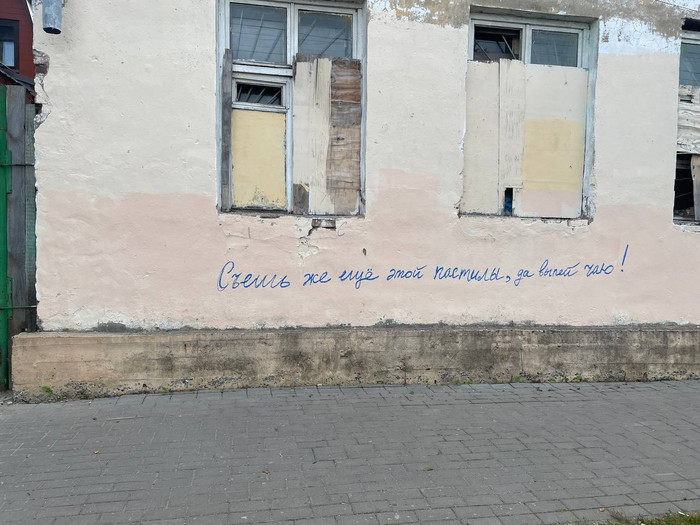 Съешь же ещё этой пастилы, да выпей чаю!